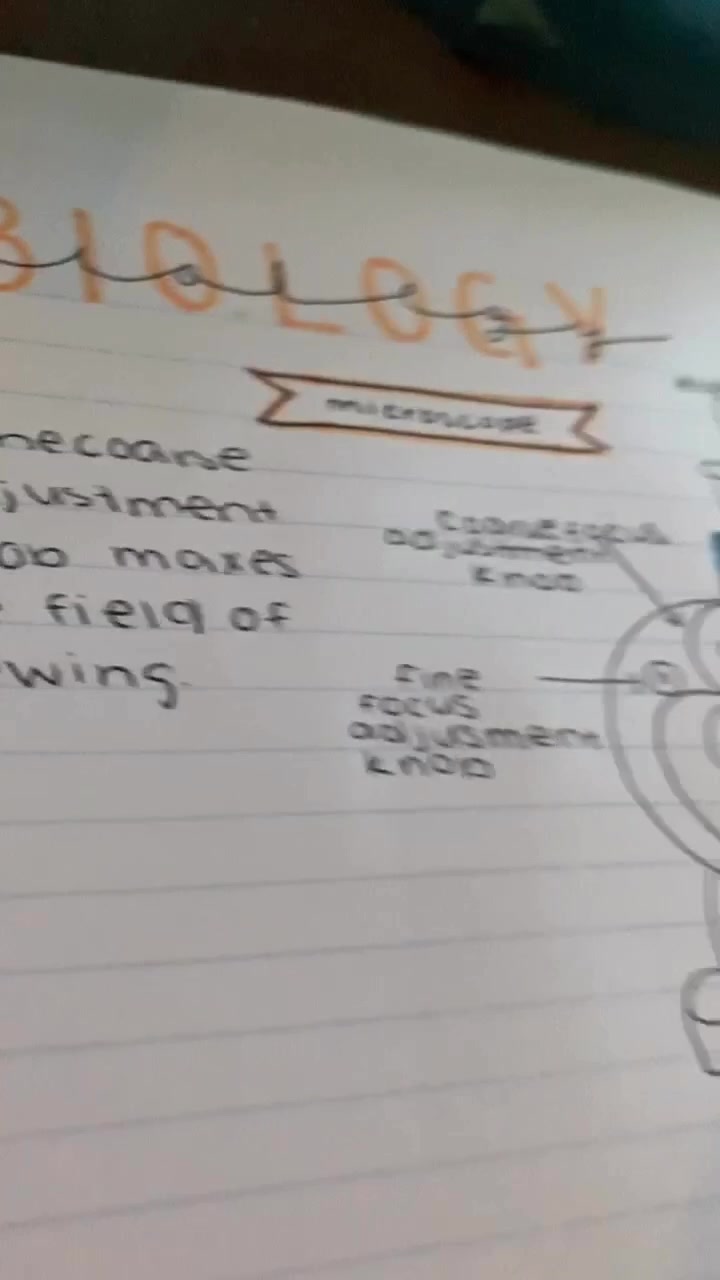 BIOLOGY
Biology
microscope
necoarse
justment
ob makes
field of
wing.
Coarse focus
adjustment
knob
fine
focus
adjusment
knob